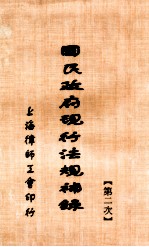 國民政府現行法規補錄
【第二次】
上海律師公會印行